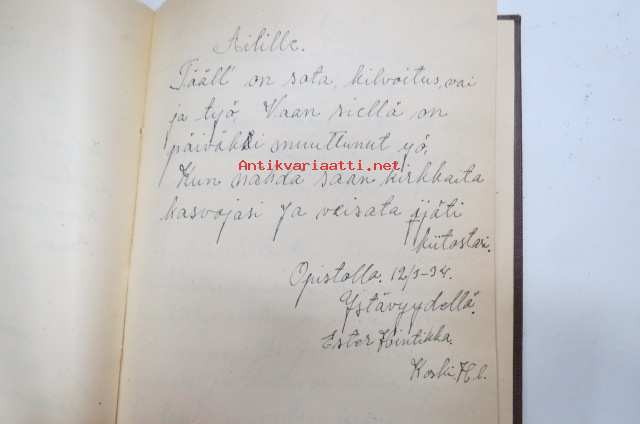 Ailille.
Tääll on sota, kilvoitus, vai
ja työ, Vaan siellä on
päiväksi muuttunut yö,
Antikvariaatti.net
Kun nähdä saan kirkkaita
kasvojasi Ja veisata ijäti
kiitostasi.
Opistolla. 12/3-34.
Ystävyydellä.
Ester
Koski H.l.